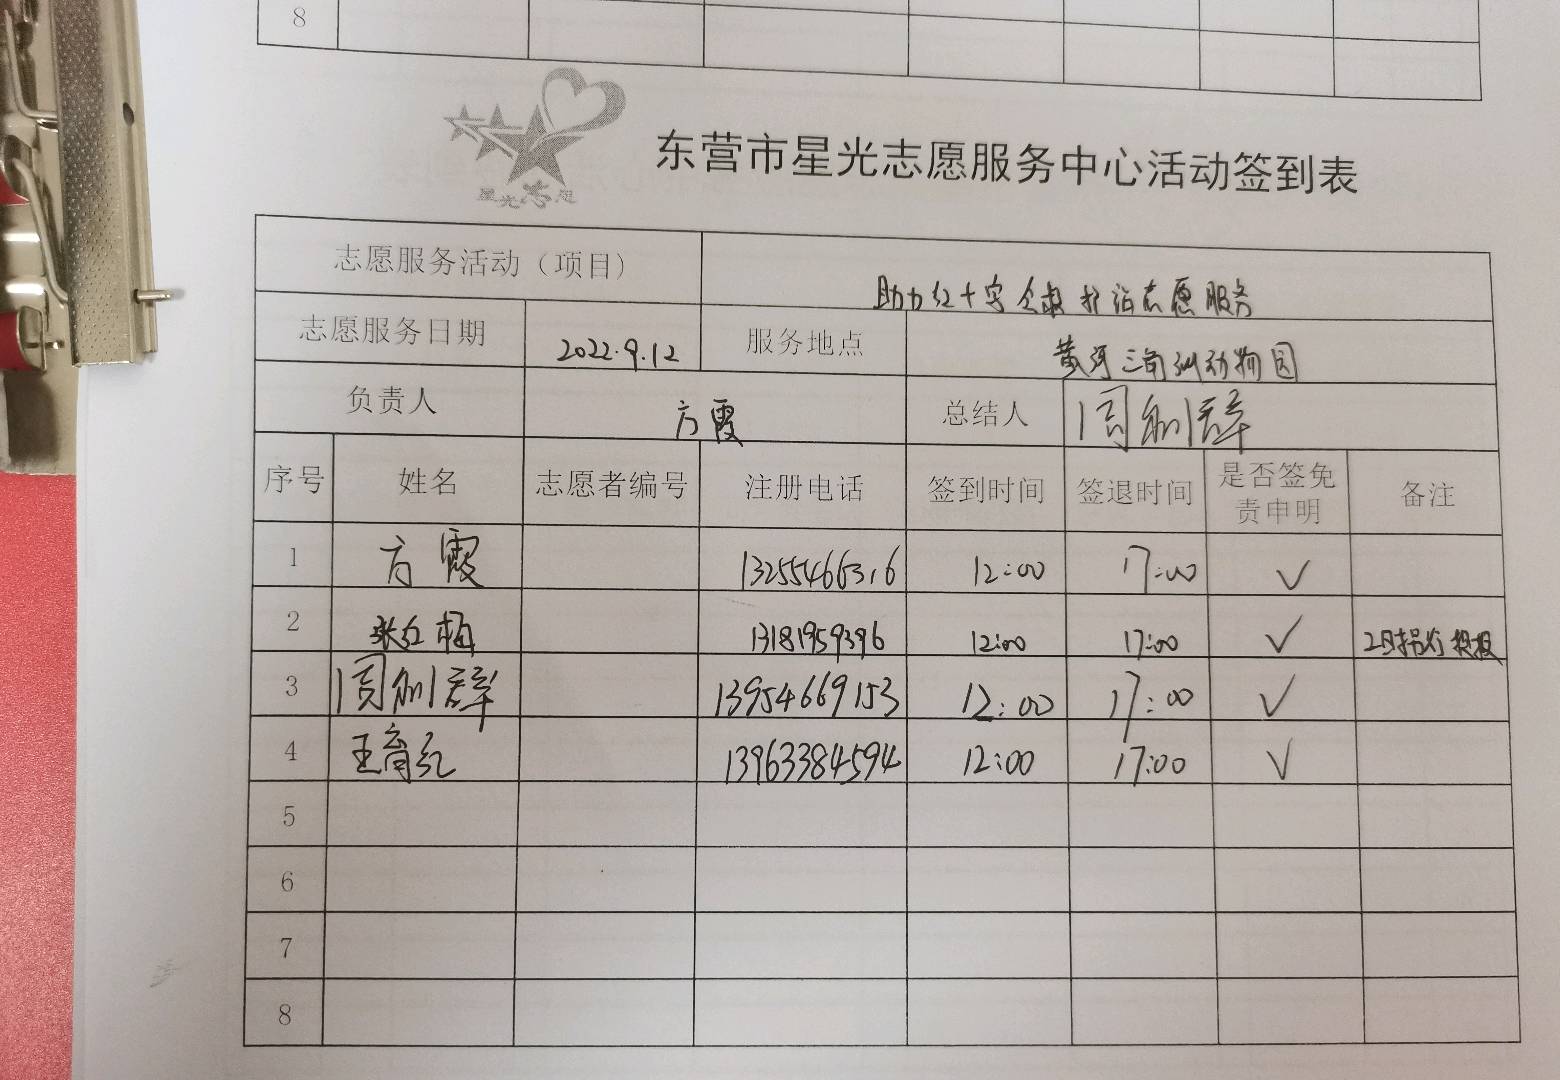 8
星光志愿
东营市星光志愿服务中心活动签到表
志愿服务活动（项目） 助力红十字会救护站志愿服务
志愿服务日期 2022.9.12 服务地点 黄河三角洲动物园
负责人 方霞 总结人
序号 姓名 志愿者编号 注册电话 签到时间 签退时间 是否签免责申明 备注
1 方霞 13255466316 12:00 17:00 ✓
2 张红梅 13181959396 12:00 17:00 ✓
3 13954669153 12:00 17:00 ✓
4 13963384594 12:00 17:00 ✓
5
6
7
8